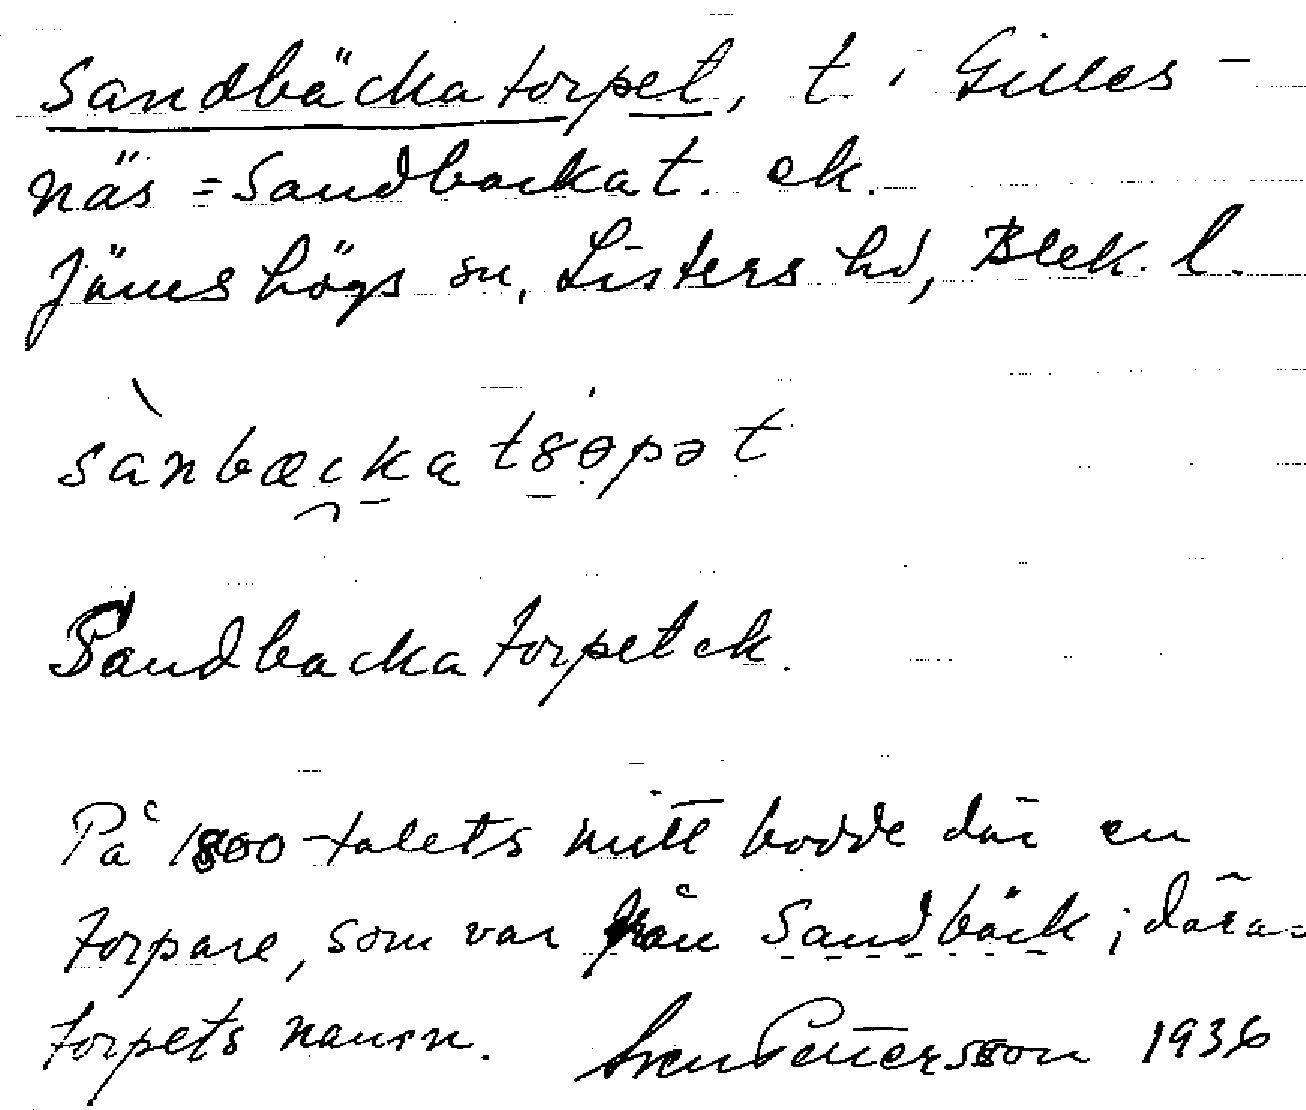 Sandbäckatorpet, t. i Gilles-
näs = Sandbackat. ek.
Jämshögs sn, Listers hd, Blek. l.
sànbæcka tsopət
Sandbackatorpet ek.
På 1800-talets mitt bodde där en
torpare, som var från Sandbäck; dära=
torpets namn. Sven Pettersson 1936